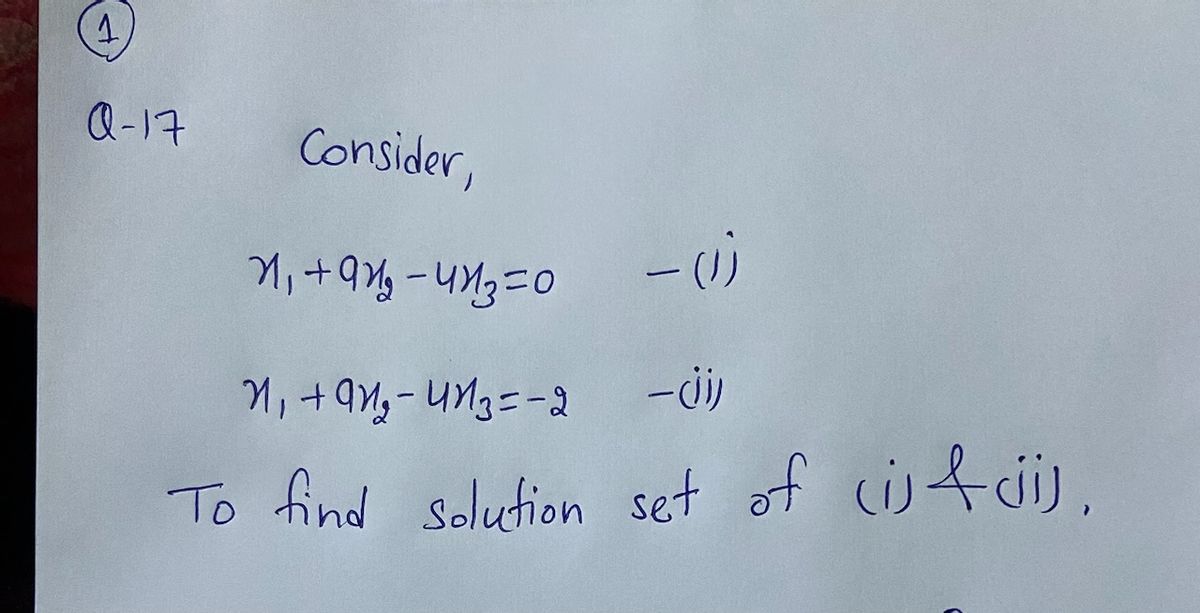 1
Q-17
Consider,
x₁+9x₂-4x₃=0 -(i)
x₁+9x₂-4x₃=-2 -(ii)
To find solution set of (i) & (ii).